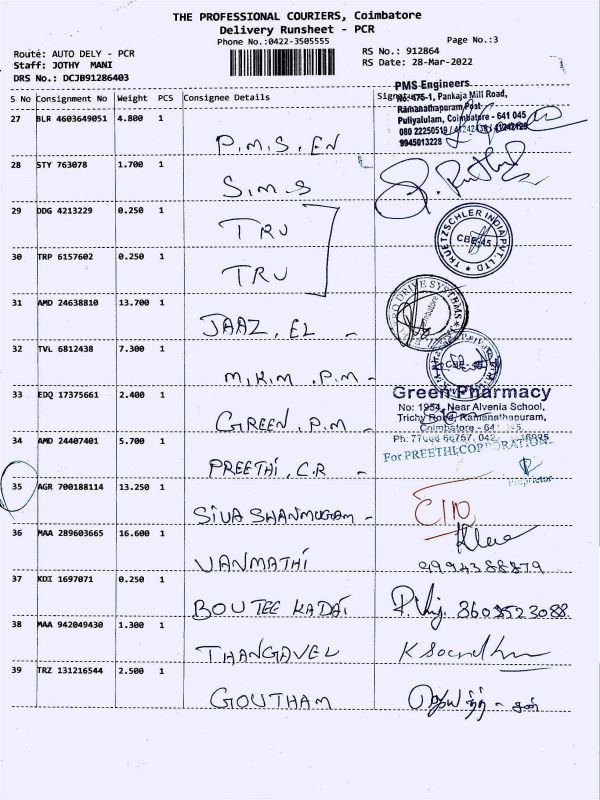 THE PROFESSIONAL COURIERS, Coimbatore
Delivery Runsheet - PCR
Phone No.:0422-3505555
Page No.:3
Route: AUTO DELY - PCR
RS No.: 912864
Staff: JOTHY MANI
RS Date: 28-Mar-2022
DRS No.: DCJB91286403
S No Consignment No Weight PCS Consignee Details Signature
PMS Engineers
No. 475-1, Pankaja Mill Road,
Ramanathapuram Post
Puliyalulam, Coimbatore - 641 045
080 22250519
9945013228
27 BLR 4603649051 4.800 1
P.M.S. EN
28 STY 763078 1.700 1
S.M.S
29 DDG 4213229 0.250 1
TRU
TRUETZSCHLER INDIA PVT LTD
CBE-45
30 TRP 6157602 0.250 1
TRU
31 AMD 24638810 13.700 1
JAAZ, EL -
DRIVE SYSTEMS
Coimbatore
32 TVL 6812438 7.300 1
M.K.M .P.M -
33 EDQ 17375661 2.400 1
GREEN, P.M -
Green Pharmacy
No: 1954, Near Alvenia School,
Trichy Road, Ramanathapuram,
Coimbatore - 641
34 AMD 24407401 5.700 1
PREETHI, C.R -
For PREETHI CORPORATION
Proprietor
35 AGR 700188114 13.250 1
SIVA SHANMUGAM -
36 MAA 289603665 16.600 1
VANMATHI
9994388879
37 KDI 1697071 0.250 1
BOUTEE KADAI
8603523088
38 MAA 942049430 1.300 1
THANGAVEL
39 TRZ 131216544 2.500 1
GOUTHAM